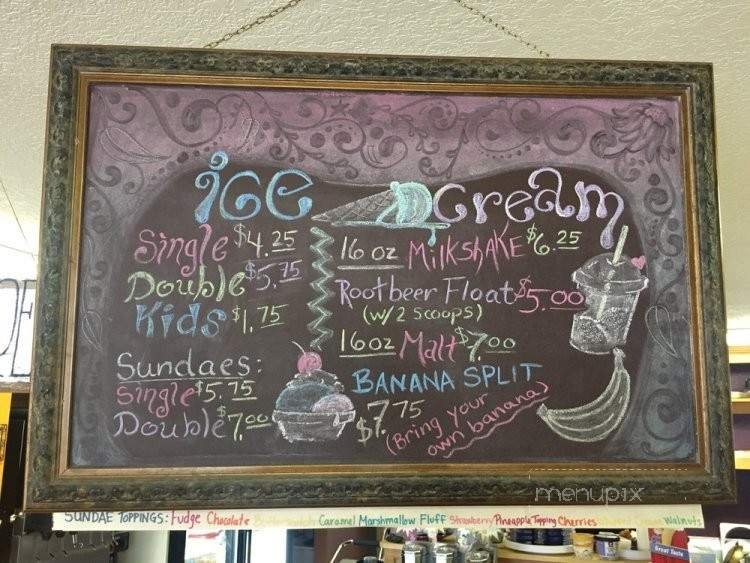 Ice Cream
Single $4.25
Double $5.75
Kids $1.75
Sundaes:
Single $5.75
Double $7.00
16 oz Milkshake $6.25
Rootbeer Float $5.00
(w/2 scoops)
16oz Malt $7.00
BANANA SPLIT
$7.75
(Bring your
own banana)
menupix
SUNDAE TOPPINGS: Fudge Chocolate Butterscotch Caramel Marshmallow Fluff Strawberry Pineapple Topping Cherries Whipped Cream Walnuts
Great Taste